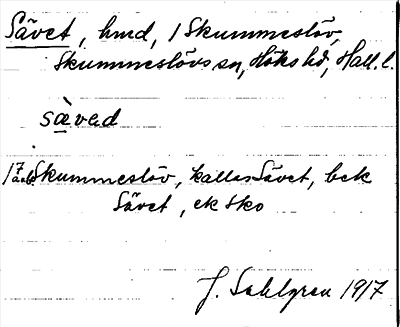 Sävet, hmd, 1 Skummeslöv,
Skummeslövs sn, Höks hd, Hall. l.
sæ̀vəd
Skummeslöv, kallas Sävet, bek
Sävet, ek sko
J. Sahlgren 1917